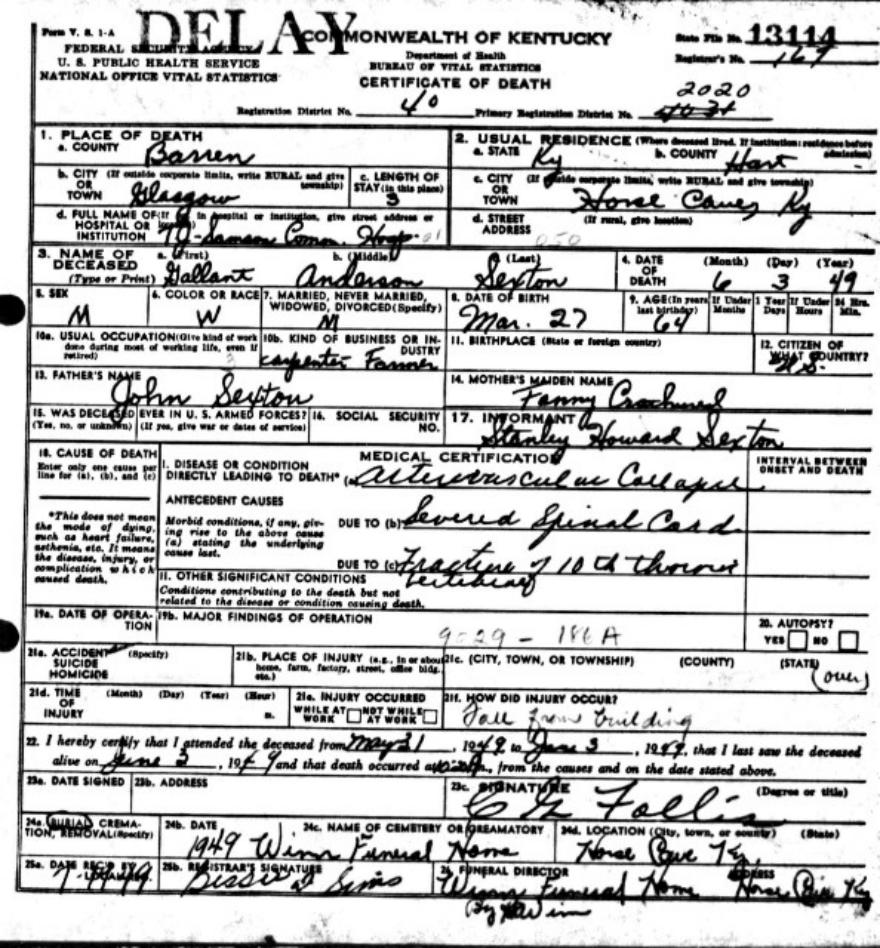 DELAY
Form V. S. 1-A
FEDERAL SECURITY AGENCY
U. S. PUBLIC HEALTH SERVICE
NATIONAL OFFICE VITAL STATISTICS
COMMONWEALTH OF KENTUCKY
Department of Health
BUREAU OF VITAL STATISTICS
CERTIFICATE OF DEATH
State File No. 13114
Registrar's No. 167
2020
Registration District No. 40 Primary Registration District No. 4031
1. PLACE OF DEATH
a. COUNTY Barren
2. USUAL RESIDENCE (Where deceased lived. If institution: residence before admission)
a. STATE Ky b. COUNTY Hart
b. CITY (If outside corporate limits, write RURAL and give township) OR TOWN Glasgow
c. LENGTH OF STAY (in this place) 3
c. CITY (If outside corporate limits, write RURAL and give township) OR TOWN Horse Cave, Ky
d. FULL NAME OF (If not in hospital or institution, give street address or location) HOSPITAL OR INSTITUTION T J Samson Comm. Hosp
d. STREET ADDRESS (If rural, give location)
050
3. NAME OF DECEASED (Type or Print) a. (First) Gallant b. (Middle) Anderson c. (Last) Sexton
4. DATE OF DEATH (Month) (Day) (Year) 6 3 49
5. SEX M
6. COLOR OR RACE W
7. MARRIED, NEVER MARRIED, WIDOWED, DIVORCED (Specify) M
8. DATE OF BIRTH Mar. 27
9. AGE (In years last birthday) 64 If Under 1 Year Months Days If Under 24 Hrs. Hours Min.
10a. USUAL OCCUPATION (Give kind of work done during most of working life, even if retired)
10b. KIND OF BUSINESS OR INDUSTRY carpenter Farmer
11. BIRTHPLACE (State or foreign country)
12. CITIZEN OF WHAT COUNTRY? U.S.
13. FATHER'S NAME John Sexton
14. MOTHER'S MAIDEN NAME Fanny
15. WAS DECEASED EVER IN U. S. ARMED FORCES? (Yes, no, or unknown) (If yes, give war or dates of service)
16. SOCIAL SECURITY NO.
17. INFORMANT Stanley Howard Sexton
18. CAUSE OF DEATH
Enter only one cause per line for (a), (b), and (c)
MEDICAL CERTIFICATION
INTERVAL BETWEEN ONSET AND DEATH
I. DISEASE OR CONDITION DIRECTLY LEADING TO DEATH* (a) Collapse
*This does not mean the mode of dying, such as heart failure, asthenia, etc. It means the disease, injury, or complication which caused death.
ANTECEDENT CAUSES
Morbid conditions, if any, giving rise to the above cause (a) stating the underlying cause last.
DUE TO (b) Severed Spinal Cord
DUE TO (c) Fracture of 10th thoracic vertebrae
II. OTHER SIGNIFICANT CONDITIONS
Conditions contributing to the death but not related to the disease or condition causing death.
19a. DATE OF OPERATION
19b. MAJOR FINDINGS OF OPERATION
9029 - 186A
20. AUTOPSY? YES NO
21a. ACCIDENT SUICIDE HOMICIDE (Specify)
21b. PLACE OF INJURY (e.g., in or about home, farm, factory, street, office bldg. etc.)
21c. (CITY, TOWN, OR TOWNSHIP) (COUNTY) (STATE)
(over)
21d. TIME OF INJURY (Month) (Day) (Year) (Hour) m.
21e. INJURY OCCURRED WHILE AT WORK NOT WHILE AT WORK
21f. HOW DID INJURY OCCUR? Fall from building
22. I hereby certify that I attended the deceased from May 31, 1949 to June 3, 1949, that I last saw the deceased
alive on June 3, 1949 and that death occurred at m., from the causes and on the date stated above.
23a. DATE SIGNED
23b. ADDRESS
23c. SIGNATURE (Degree or title) C G Follis
24a. BURIAL CREMATION, REMOVAL (Specify)
24b. DATE 1949
24c. NAME OF CEMETERY OR CREAMATORY Winn Funeral Home
24d. LOCATION (City, town, or county) (State) Horse Cave Ky
25a. DATE REC'D BY
25b. REGISTRAR'S SIGNATURE Bessie Sims
26. FUNERAL DIRECTOR ADDRESS Winn Funeral Home Horse Cave Ky
By Winn